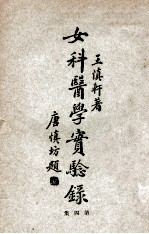 王慎軒著
女科醫學實驗錄
唐慎坊題
第四集